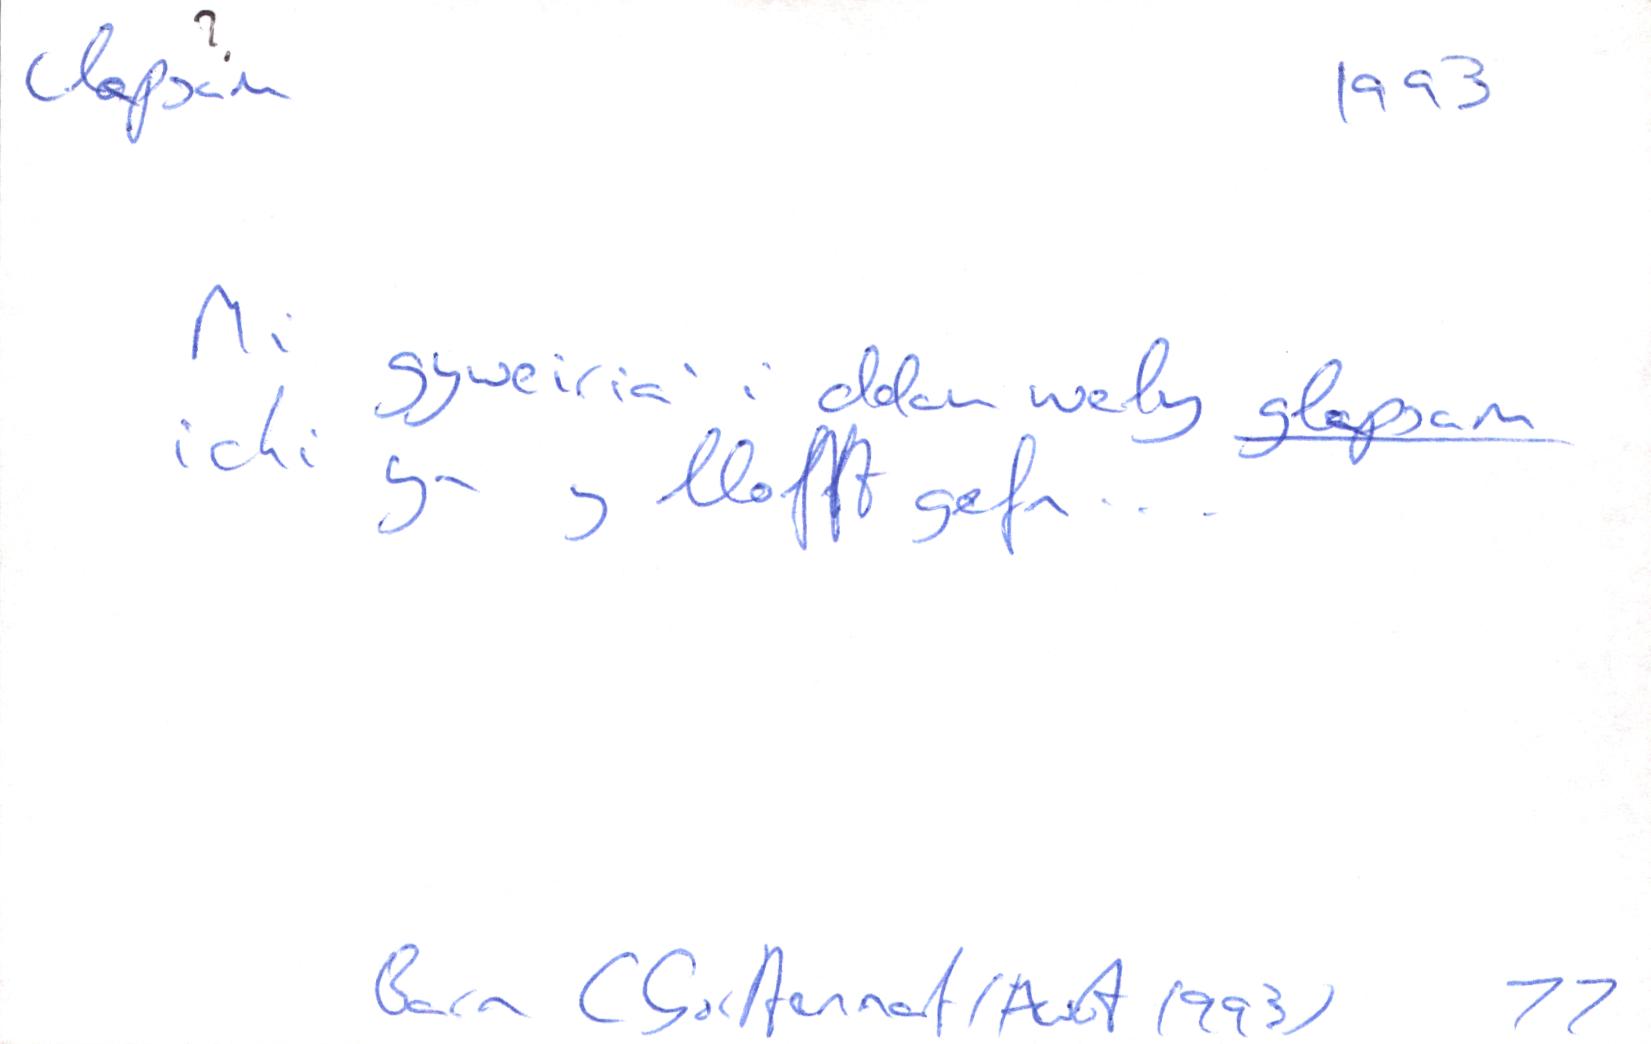 ?
clapsam 1993
Mi gyweiria' i ddau wely glapsam
ichi yn y llofft gefn ....
Barn (Gorffennaf/Awst 1993) 77